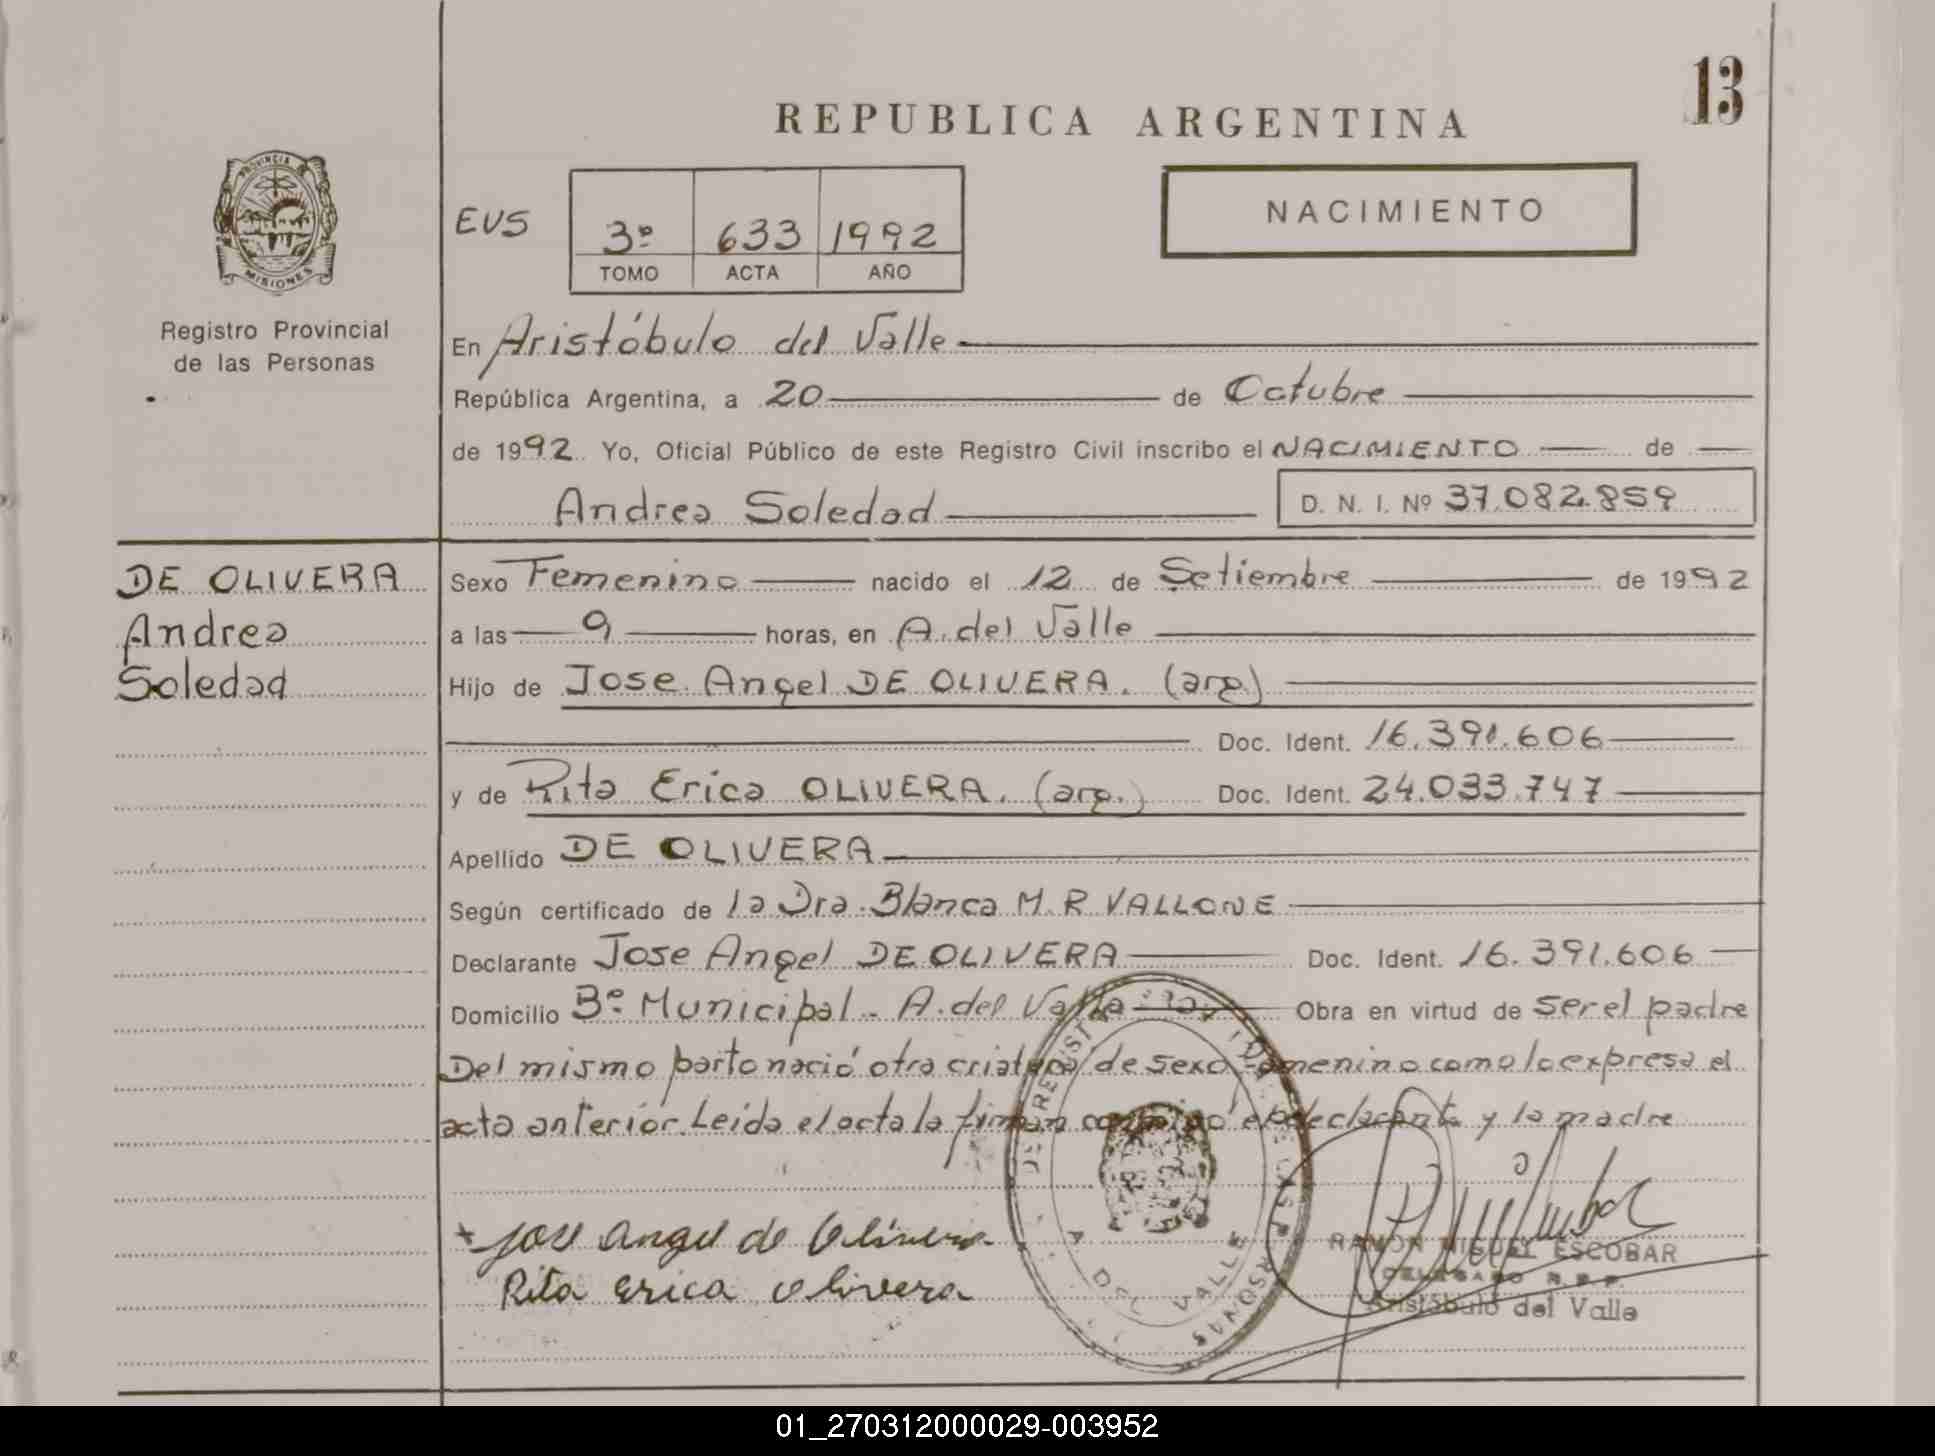 13
REPUBLICA ARGENTINA
PROVINCIA
MISIONES
Registro Provincial
de las Personas
EVS
3º 633 1992
TOMO ACTA AÑO
NACIMIENTO
En Aristóbulo del Valle
República Argentina, a 20 de Octubre
de 1992 Yo, Oficial Público de este Registro Civil inscribo el NACIMIENTO de
Andrea Soledad D. N. I. Nº 37.082.859
DE OLIVERA
Andrea
Soledad
Sexo Femenino nacido el 12 de Setiembre de 1992
a las 9 horas, en A. del Valle
Hijo de Jose Angel DE OLIVERA. (arg.)
Doc. Ident. 16.391.606
y de Rita Erica OLIVERA. (arg.) Doc. Ident. 24.033.747
Apellido DE OLIVERA
Según certificado de la Dra. Blanca M. R VALLONE
Declarante Jose Angel DE OLIVERA Doc. Ident. 16.391.606
Domicilio Bº Municipal - A. del Valle Obra en virtud de ser el padre
Del mismo parto nació otra criatura de sexo femenino como lo expresa el
acta anterior. Leida el acta la firman conmigo el declarante y la madre
Jose Angel de Olivera
Rita Erica Olivera
RAMON MIGUEL ESCOBAR
DELEGADO R.P.P.
Aristóbulo del Valle
A. DEL VALLE
01_270312000029-003952